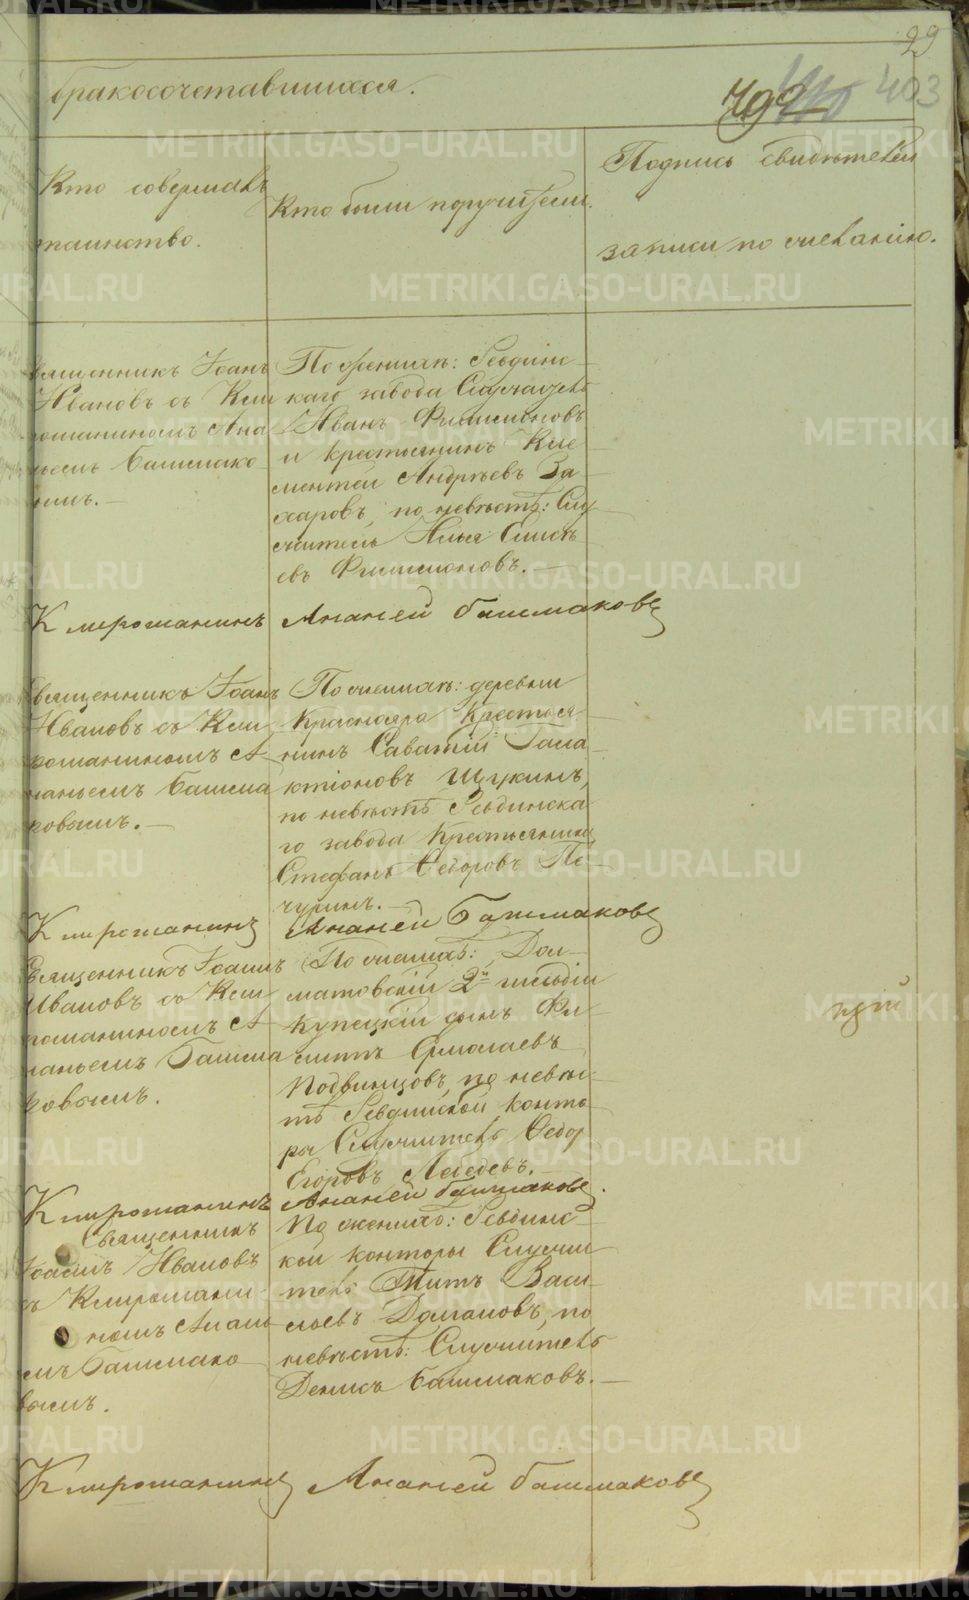 29
403
бракосочетавшихся.
Кто совершалъ
таинство.
Кто были поручители.
Подпись свидѣтелей
записи по желанію.
Священникъ Іоаннъ
Ивановъ съ Кли
рошаниномъ Ана
ніемъ Башмако
вымъ.
По женихѣ: Ревдинс
каго завода Служитель
Иванъ Филимоновъ
и крестьянинъ Кле
ментей Андреевъ За
харовъ, по невѣстѣ: Слу
житель Илья Елисѣ
евъ Филимоновъ.
Клирошанинъ Ананей Башмаковъ
Священникъ Іоаннъ
Ивановъ съ Кли
рошаниномъ А
наньемъ Башма
ковымъ.
По женихѣ: деревни
Краснояра Крестья
нинъ Саватій Гала
ктіоновъ Щукинъ,
по невѣстѣ Ревдинска
го завода Крестьянинъ
Стефанъ Ѳедоровъ Пе
чуринъ.
Клирошанинъ Ананей Башмаковъ
Священникъ Іоаннъ
Ивановъ съ Кли
рошаниномъ А
наньемъ Башма
ковымъ.
По женихѣ: Дол
матовскій 2й гильдіи
Купецкій сынъ Фи
липъ Ермолаевъ
Подвинцовъ, по невѣс
тѣ Ревдинской конто
ры Служитель Ѳедор
Егоровъ Лебедевъ.
Клирошанинъ Ананей Башмаковъ.
Священникъ
Іоаннъ Ивановъ
съ Клирошани
номъ Анань
емъ Башмако
вымъ.
По женихѣ: Ревдинс
кой конторы Служи
тель Титъ Васи
льевъ Долмановъ, по
невѣстѣ: Служитель
Денисъ Башмаковъ.
Клирошанинъ Ананей Башмаковъ
METRIKI.GASO-URAL.RU